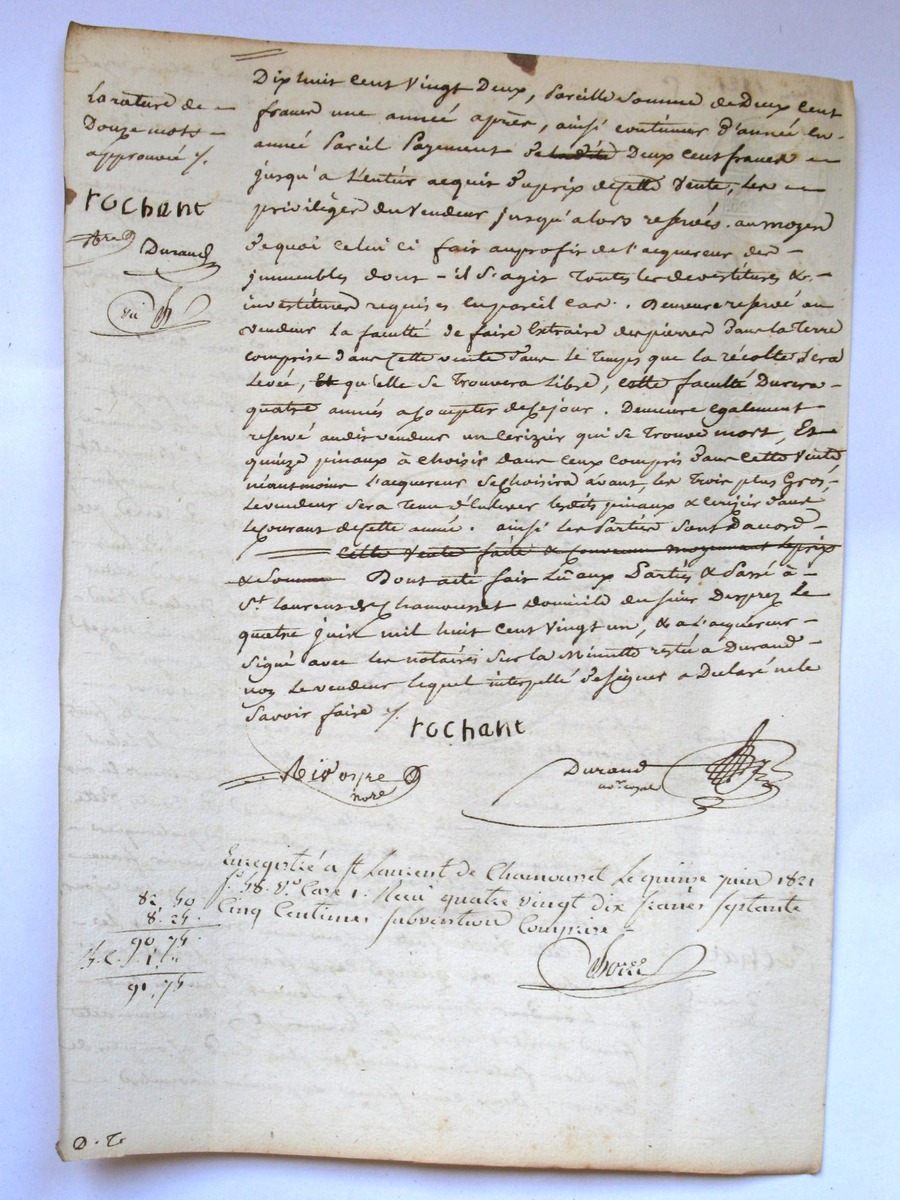 La rature de
Douze mots
approuvée /.
rochant
Durand
Dix huit cent vingt Deux, Pareille Somme de Deux cent
francs une année après, ainsi continuer d'année en
année Pareil Payement de Deux cent francs
jusqu'a L'entier acquit du prix de cette Vente, les
privilèges du vendeur jusqu'alors reservés. au moyen
de quoi celui ci fait au profit de l'acquereur des
immeubles dont il S'agit Toutes les devestitures &
investitures requises en pareil cas. Demeure reservé au
vendeur la faculté de faire Extraire des pierres dans la Terre
comprise dans cette vente dans le Temps que la récolte Sera
Levée, Et qu'elle Se Trouvera Libre, cette faculté Durera
quatre années a Compter de Ce jour. Demeure également
reservé audit vendeur un Cerizier qui Se Trouve mort, Et
quinze pinaux à choisir dans ceux compris dans Cette Vente
néantmoins l'acquereur Choisira avant, les Trois plus Gros,
Le vendeur Sera Tenu d'Enlever lesdits pinaux & cerizier dans
le Courant de cette année. ainsi les Parties Sont D'accord
Cette Vente faite & Convenue moyennant le prix
& Somme Dont acte fait Lu aux Parties & Passé à
St. Laurent de Chamousset domicile du Sieur Desprez Le
quatre juin mil huit cent vingt un, & a L'acquereur
Signé avec les notaires Sur la Minute restée à Durand
Le vendeur lequel interpellé de Signer a Declaré ne le
Savoir faire /.
rochant
nore
Durand
not. royal
Enregistré a St Laurent de Chamousset Le quinze juin 1821
f.o 58. V.o Case 1. Recu quatre vingt dix francs Septante
Cinq Centimes Subvention Comprise
82, 50
8, 25
90, 75
1
91, 75